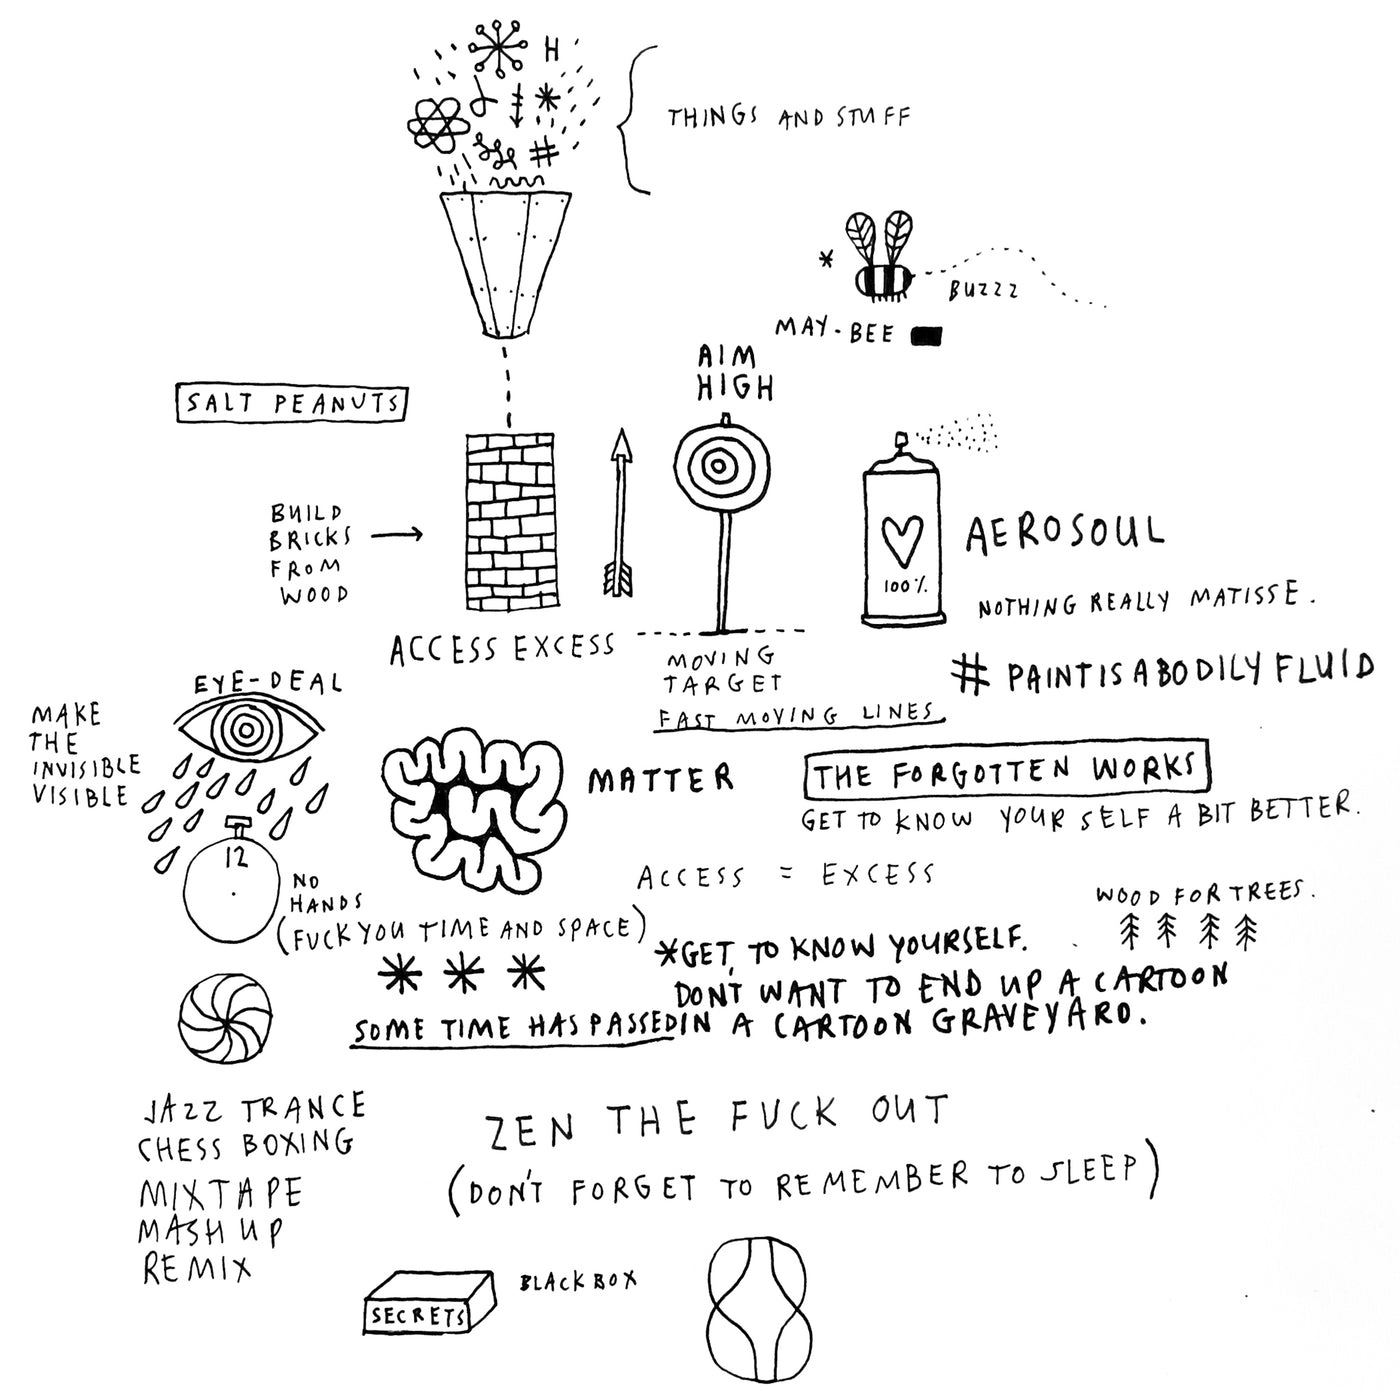 H
THINGS AND STUFF
#
*
BUZZZ
MAY-BEE
AIM
HIGH
SALT PEANUTS
BUILD
BRICKS
FROM
WOOD
100%
AEROSOUL
NOTHING REALLY MATISSE.
ACCESS EXCESS
MOVING
TARGET
FAST MOVING LINES
# PAINTISABODILYFLUID
EYE-DEAL
MAKE
THE
INVISIBLE
VISIBLE
MATTER
THE FORGOTTEN WORKS
GET TO KNOW YOUR SELF A BIT BETTER.
12
NO
HANDS
(FUCK YOU TIME AND SPACE)
ACCESS = EXCESS
WOOD FOR TREES.
* * *
*GET TO KNOW YOURSELF.
DON'T WANT TO END UP A CARTOON
IN A CARTOON GRAVEYARD.
SOME TIME HAS PASSED
JAZZ TRANCE
CHESS BOXING
MIXTAPE
MASH UP
REMIX
ZEN THE FUCK OUT
(DON'T FORGET TO REMEMBER TO SLEEP)
SECRETS
BLACK BOX